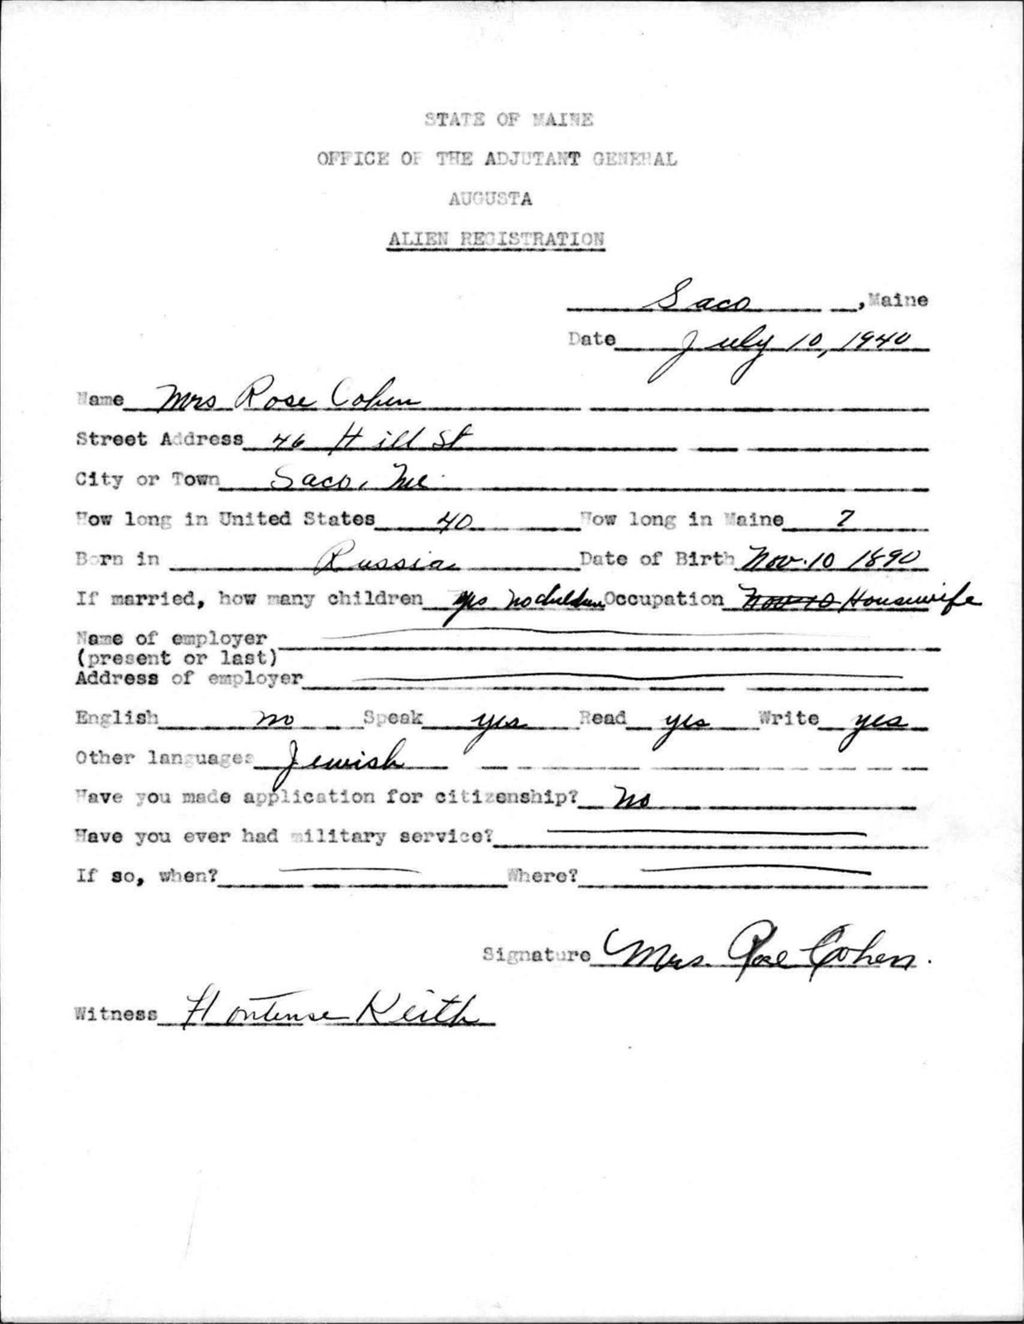 STATE OF MAINE
OFFICE OF THE ADJUTANT GENERAL
AUGUSTA
ALIEN REGISTRATION
Saco, Maine
Date July 10, 1940
Name Mrs Rose Cohen
Street Address 46 Hill St
City or Town Saco, Me.
How long in United States 40 How long in Maine 7
Born in Russia Date of Birth Nov. 10 1890
If married, how many children yes no children Occupation Nov 10 Housewife
Name of employer
(present or last)
Address of employer
English no Speak yes Read yes Write yes
Other languages Jewish
Have you made application for citizenship? No
Have you ever had military service?
If so, when? Where?
Signature Mrs. Rose Cohen.
Witness Hortense Keith